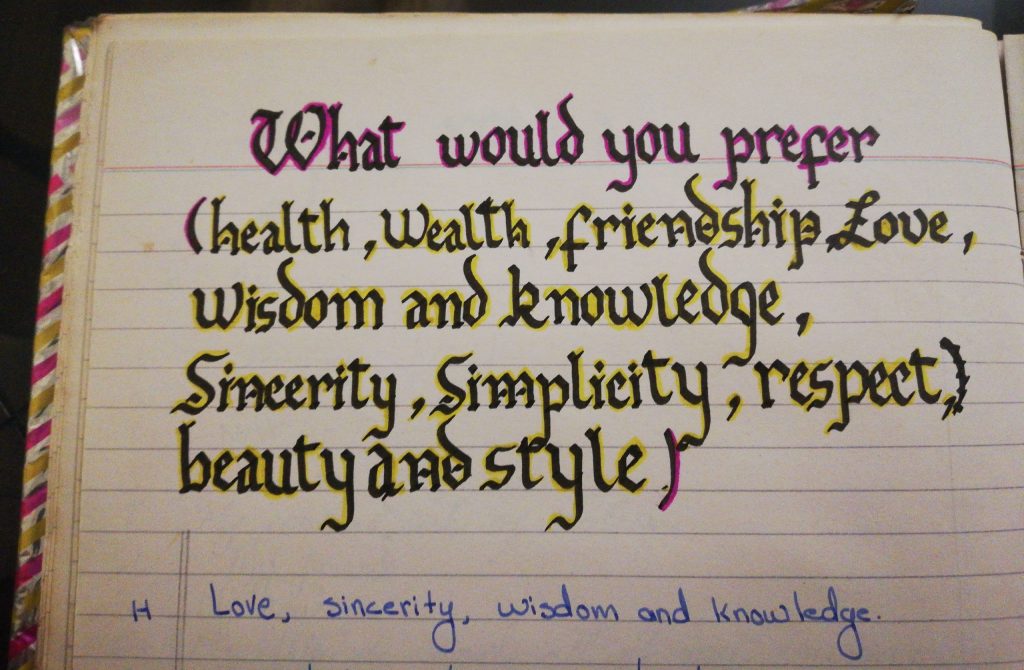 What would you prefer
(health, Wealth, friendship, Love,
Wisdom and knowledge,
Sincerity, Simplicity, respect,)
beauty and style)
H Love, sincerity, wisdom and knowledge.